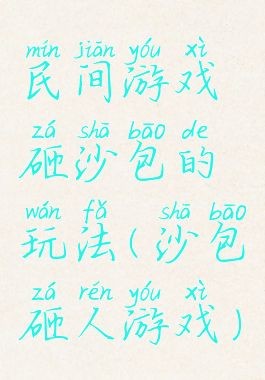 mín jiān yóu xì
民间游戏
zá shā bāo de
砸沙包的
wán fǎ shā bāo
玩法(沙包
zá rén yóu xì
砸人游戏)